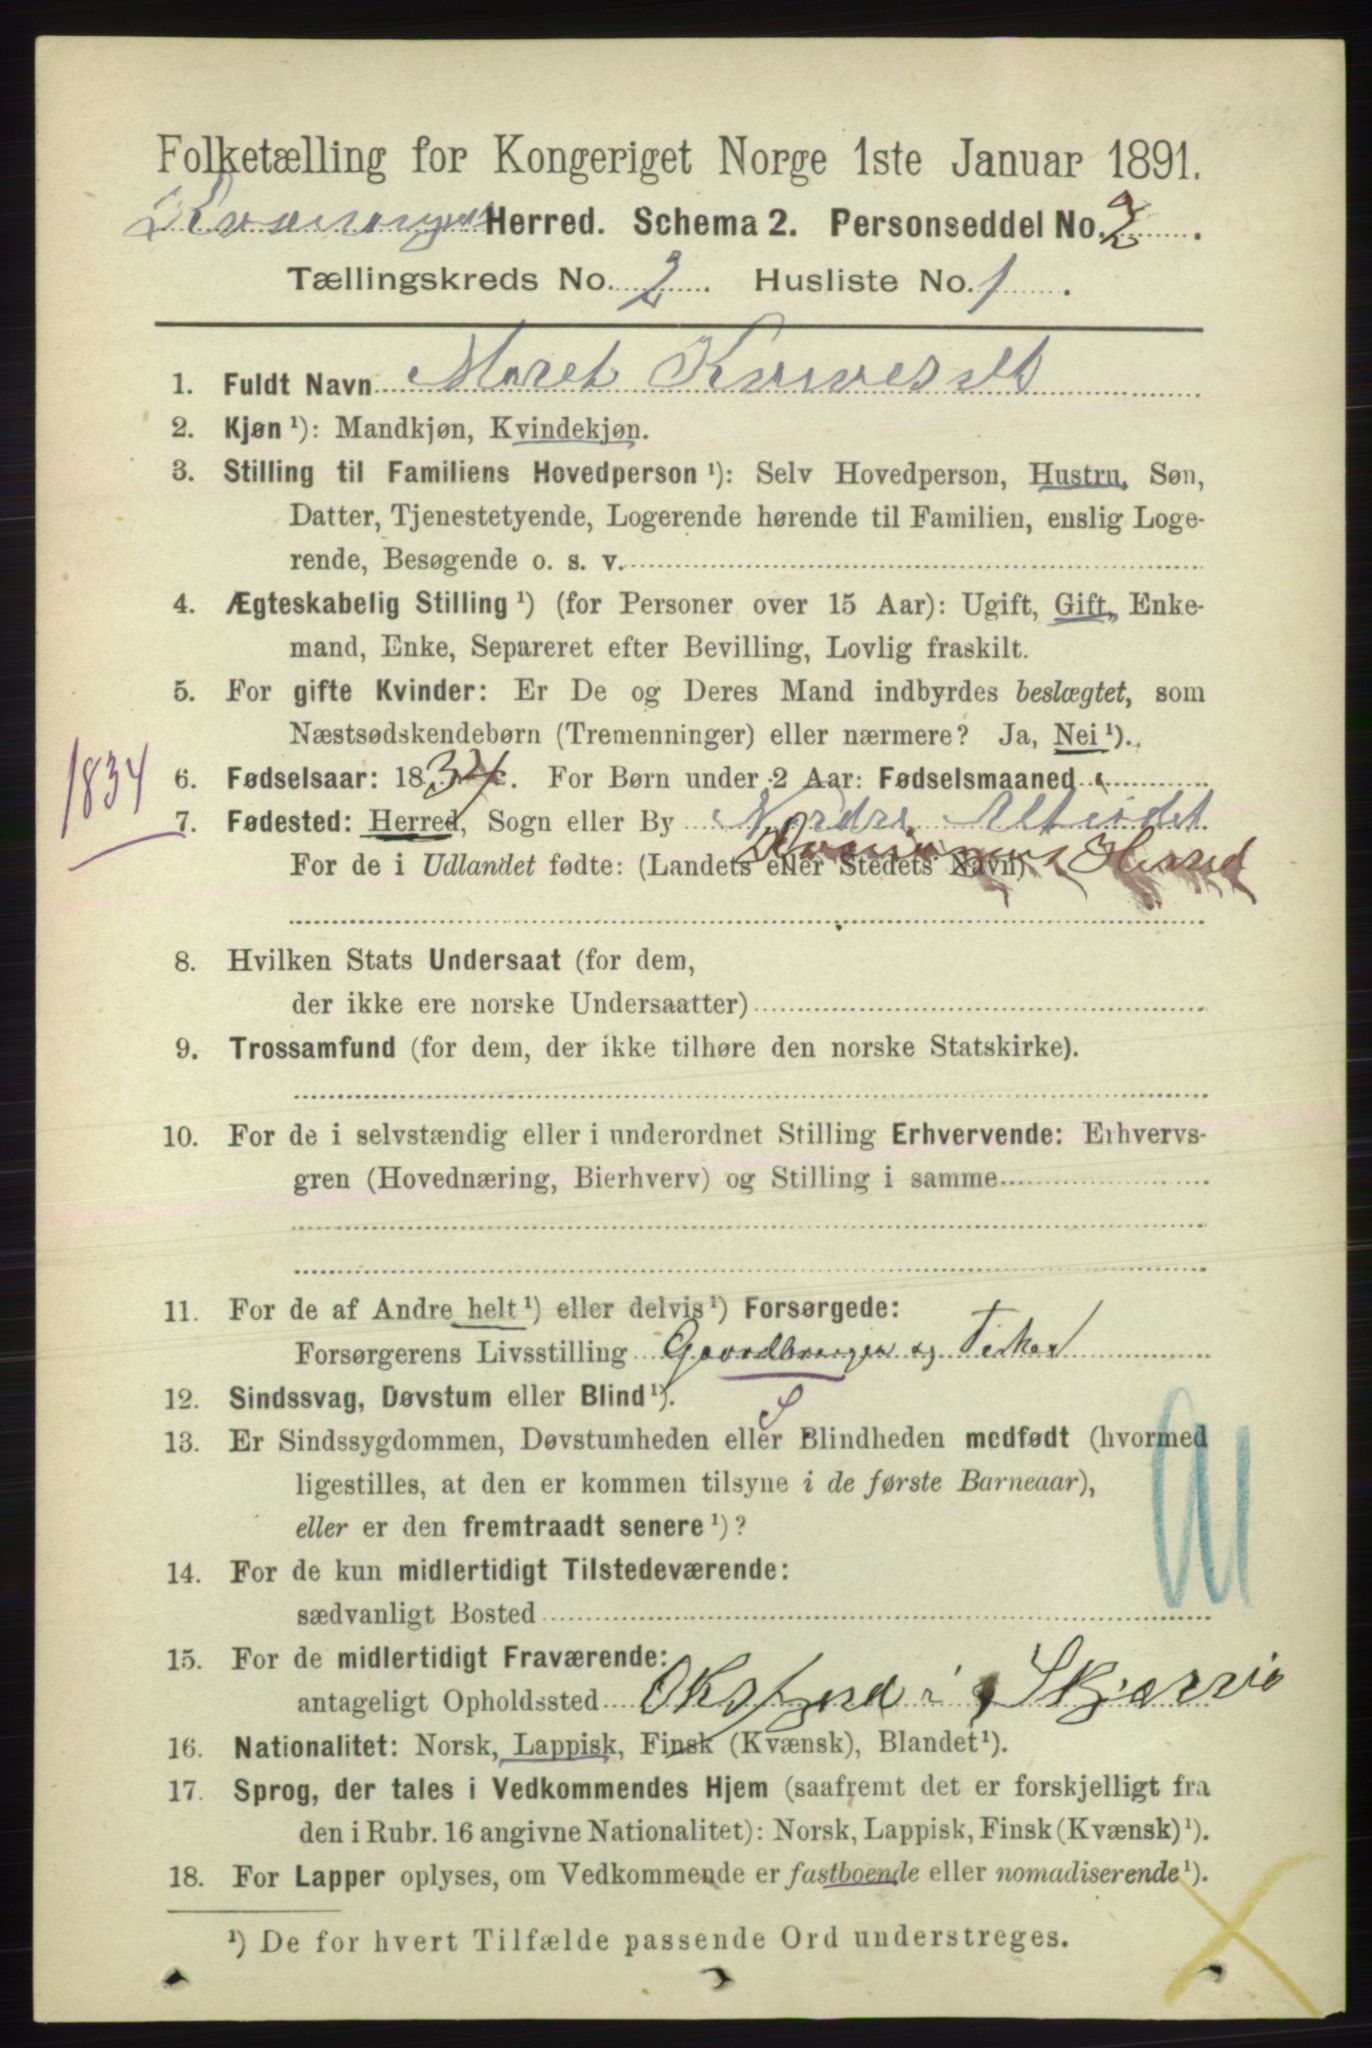 Folketælling for Kongeriget Norge 1ste Januar 1891.
Kvænangen Herred. Schema 2. Personseddel No. 2.
Tællingskreds No. 2. Husliste No. 1.
1. Fuldt Navn Maret
2. Kjøn ¹): Mandkjøn, Kvindekjøn.
3. Stilling til Familiens Hovedperson ¹): Selv Hovedperson, Hustru, Søn,
Datter, Tjenestetyende, Logerende hørende til Familien, enslig Loge-
rende, Besøgende o. s. v.
4. Ægteskabelig Stilling ¹) (for Personer over 15 Aar): Ugift, Gift, Enke-
mand, Enke, Separeret efter Bevilling, Lovlig fraskilt.
5. For gifte Kvinder: Er De og Deres Mand indbyrdes beslægtet, som
Næstsødskendebørn (Tremenninger) eller nærmere? Ja, Nei ¹).
1834
6. Fødselsaar: 1834. For Børn under 2 Aar: Fødselsmaaned
7. Fødested: Herred, Sogn eller By Nordre Alteidet
Kvænangens Herred
For de i Udlandet fødte: (Landets eller Stedets Navn)
8. Hvilken Stats Undersaat (for dem,
der ikke ere norske Undersaatter)
9. Trossamfund (for dem, der ikke tilhøre den norske Statskirke).
10. For de i selvstændig eller i underordnet Stilling Erhvervende: Erhvervs-
gren (Hovednæring, Bierhverv) og Stilling i samme
11. For de af Andre helt ¹) eller delvis ¹) Forsørgede:
Forsørgerens Livsstilling Gaardbruger og Fisker
S
12. Sindssvag, Døvstum eller Blind ¹).
13. Er Sindssygdommen, Døvstumheden eller Blindheden medfødt (hvormed
ligestilles, at den er kommen tilsyne i de første Barneaar),
eller er den fremtraadt senere ¹)?
14. For de kun midlertidigt Tilstedeværende:
sædvanligt Bosted
15. For de midlertidigt Fraværende:
antageligt Opholdssted Oksfjord i Skjærvø
16. Nationalitet: Norsk, Lappisk, Finsk (Kvænsk), Blandet ¹).
17. Sprog, der tales i Vedkommendes Hjem (saafremt det er forskjelligt fra
den i Rubr. 16 angivne Nationalitet): Norsk, Lappisk, Finsk (Kvænsk) ¹).
18. For Lapper oplyses, om Vedkommende er fastboende eller nomadiserende ¹).
¹) De for hvert Tilfælde passende Ord understreges.